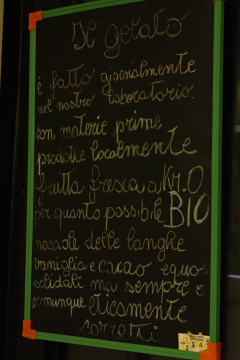 Il gelato
è fatto giornalmente
nel nostro laboratorio.
con materie prime
prodotte localmente
frutta fresca a Km.0
per quanto possibile BIO
nocciole delle langhe
vaniglia e cacao equo-
solidali ma sempre e
comunque eticamente
corretti
3 4